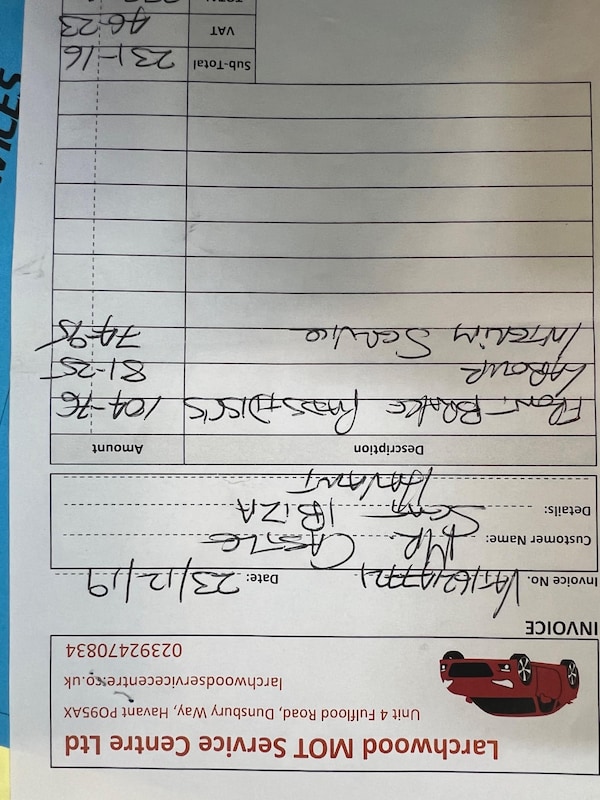 Larchwood MOT Service Centre Ltd
Unit 4 Fulflood Road, Dunsbury Way, Havant PO95AX
larchwoodservicecentre.co.uk
02392470834
INVOICE
Invoice No. Date: 23/12/19
Customer Name: MR. CASTLE
Details: SEAT IBIZA
HAVANT
Description Amount
FRONT BRAKE PADS+DISC'S 104-76
LABOUR 81-25
INTERIM SERVICE 74-95
Sub-Total 231-16
VAT 46-23
TOTAL